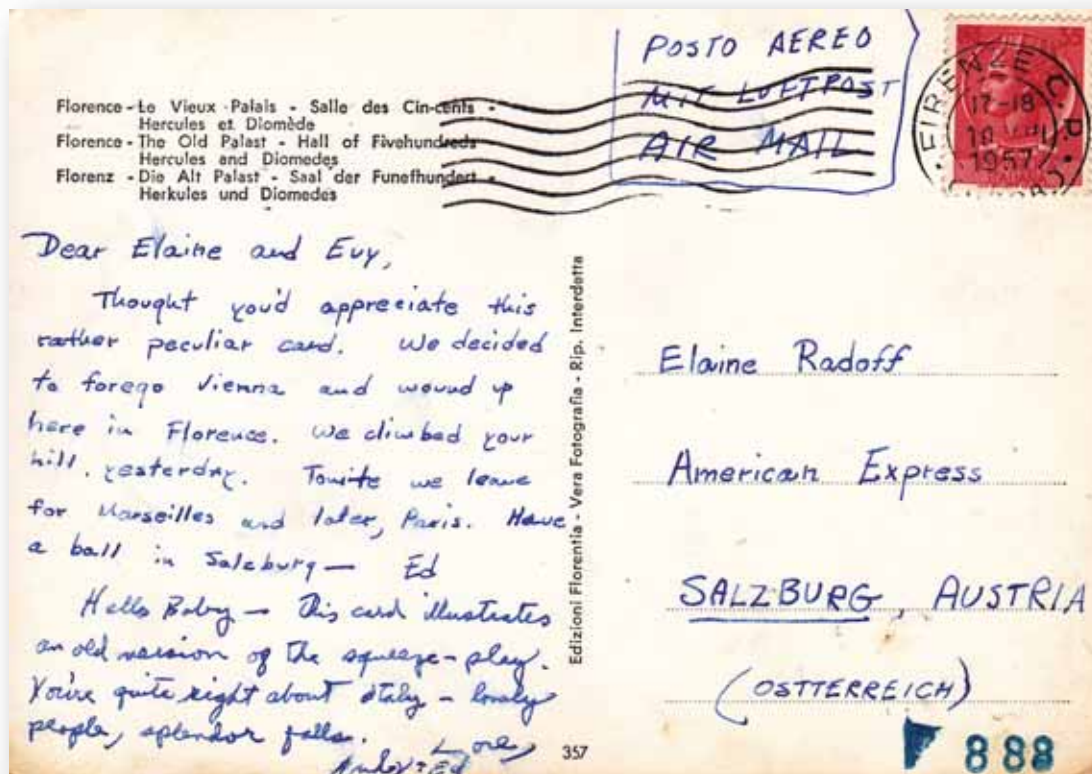 POSTO AEREO
MIT LUFTPOST
AIR MAIL
FIRENZE C.P.
17-18
10
1957
Florence - Le Vieux Palais - Salle des Cin-cents -
Hercules et Diomède
Florence - The Old Palast - Hall of Fivehundreds -
Hercules and Diomedes
Florenz - Die Alt Palast - Saal der Funefhundert -
Herkules und Diomedes
Dear Elaine and Evy,
Thought you'd appreciate this
rather peculiar card. We decided
to forego Vienna and wound up
here in Florence. We climbed your
hill. yesterday. Tonite we leave
for Marseilles and later, Paris. Have
a ball in Salzburg — Ed
Hello Baby — This card illustrates
an old version of the squeeze-play.
You're quite right about Italy — lovely
people, splendor falls.
Love,
Ed
Edizioni Florentia - Vera Fotografia - Rip. Interdetta
357
Elaine Radoff
American Express
SALZBURG, AUSTRIA
(OSTTERREICH)
888